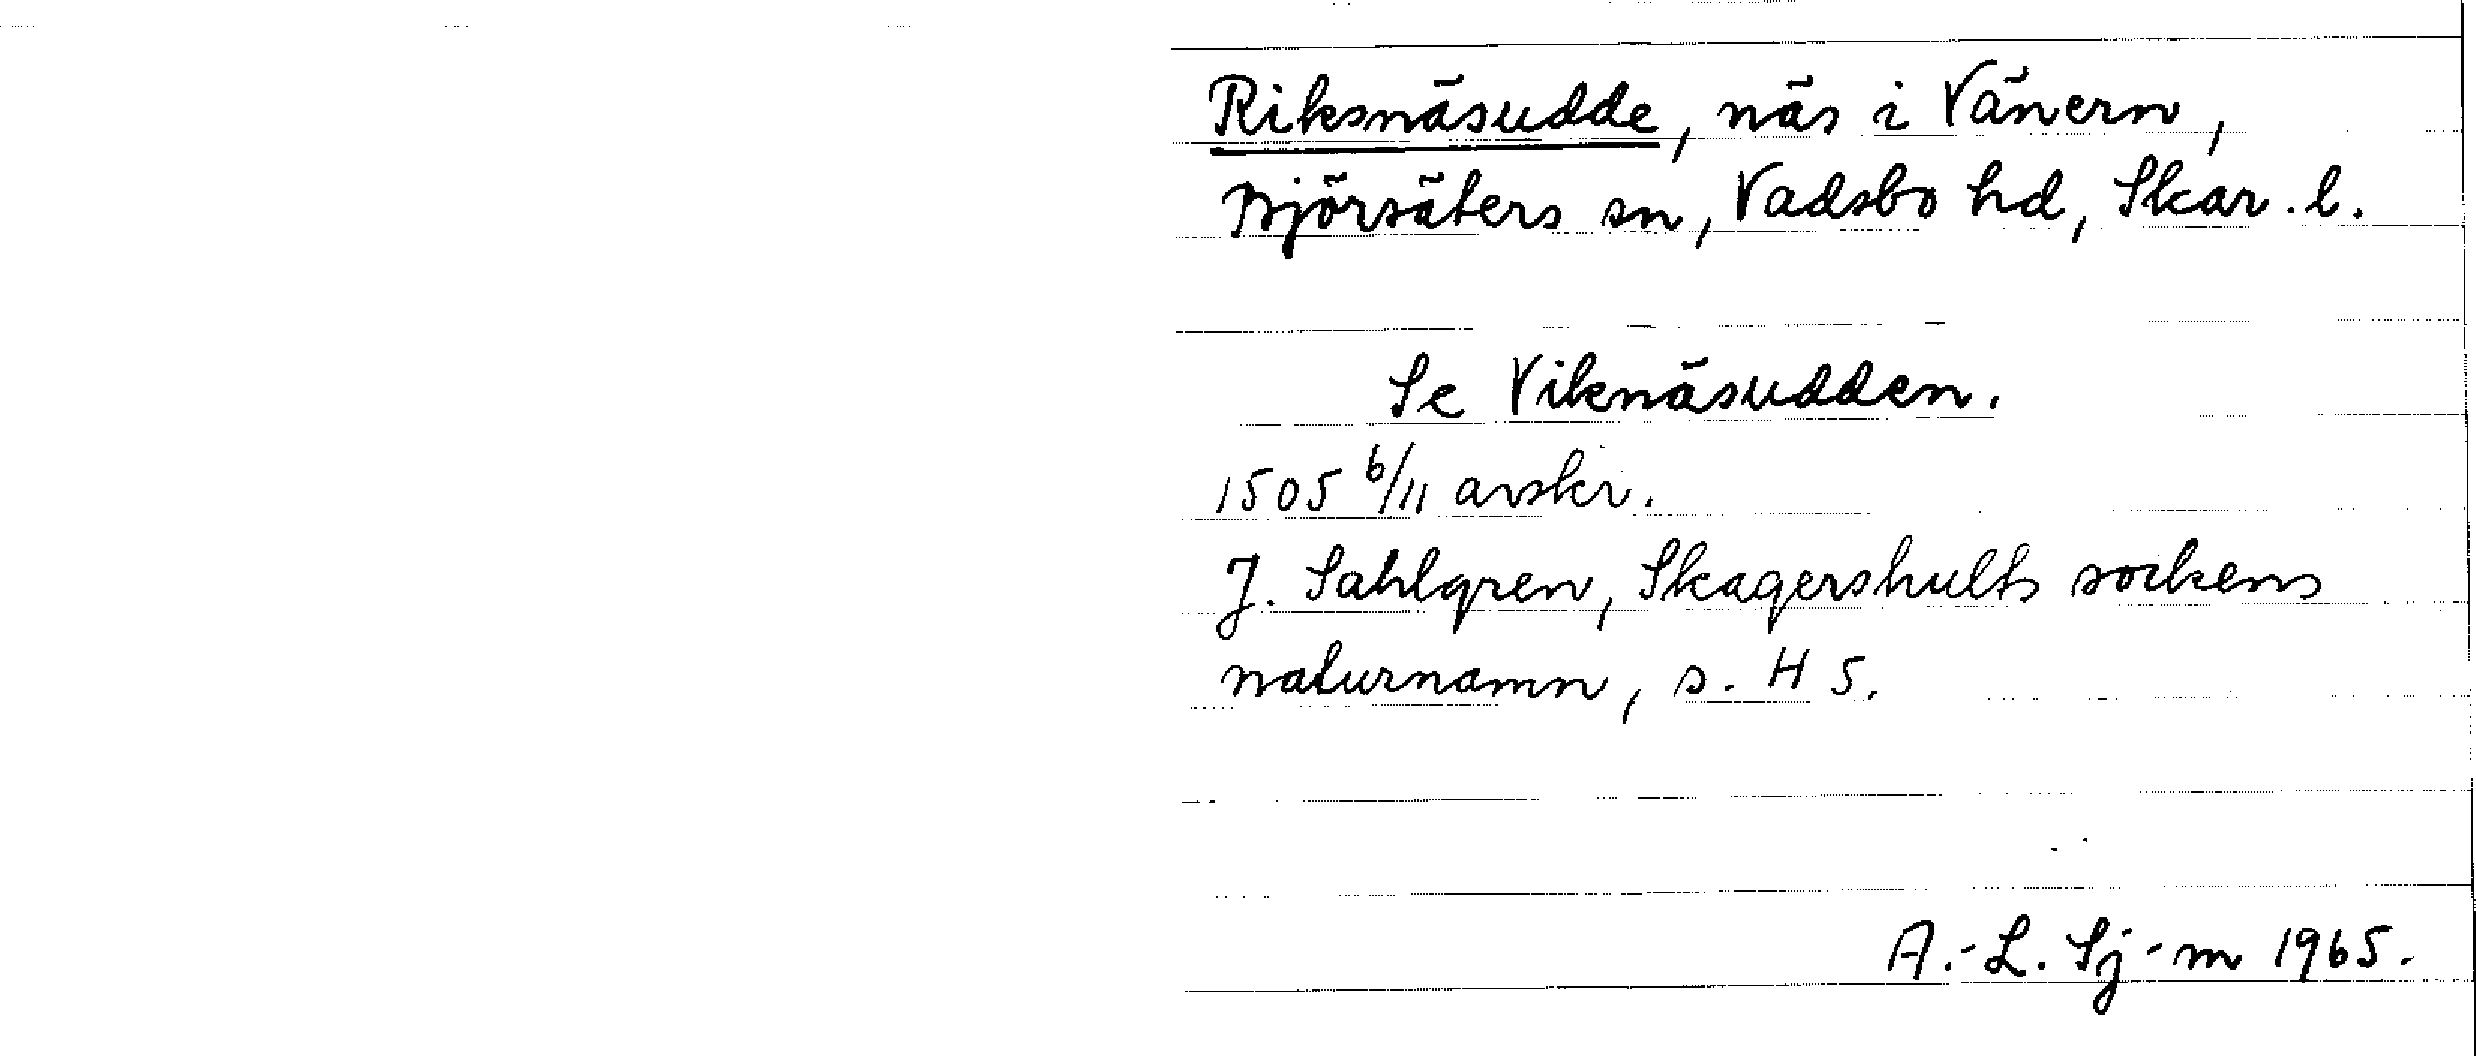 Riksnäsudde, näs i Vänern,
Björsäters sn, Vadsbo hd, Skar. l.
Se Viknäsudden.
1505 6/11 avskr.
J. Sahlgren, Skagershults sockens
naturnamn, s. 45.
A.-L. Sj-m 1965.